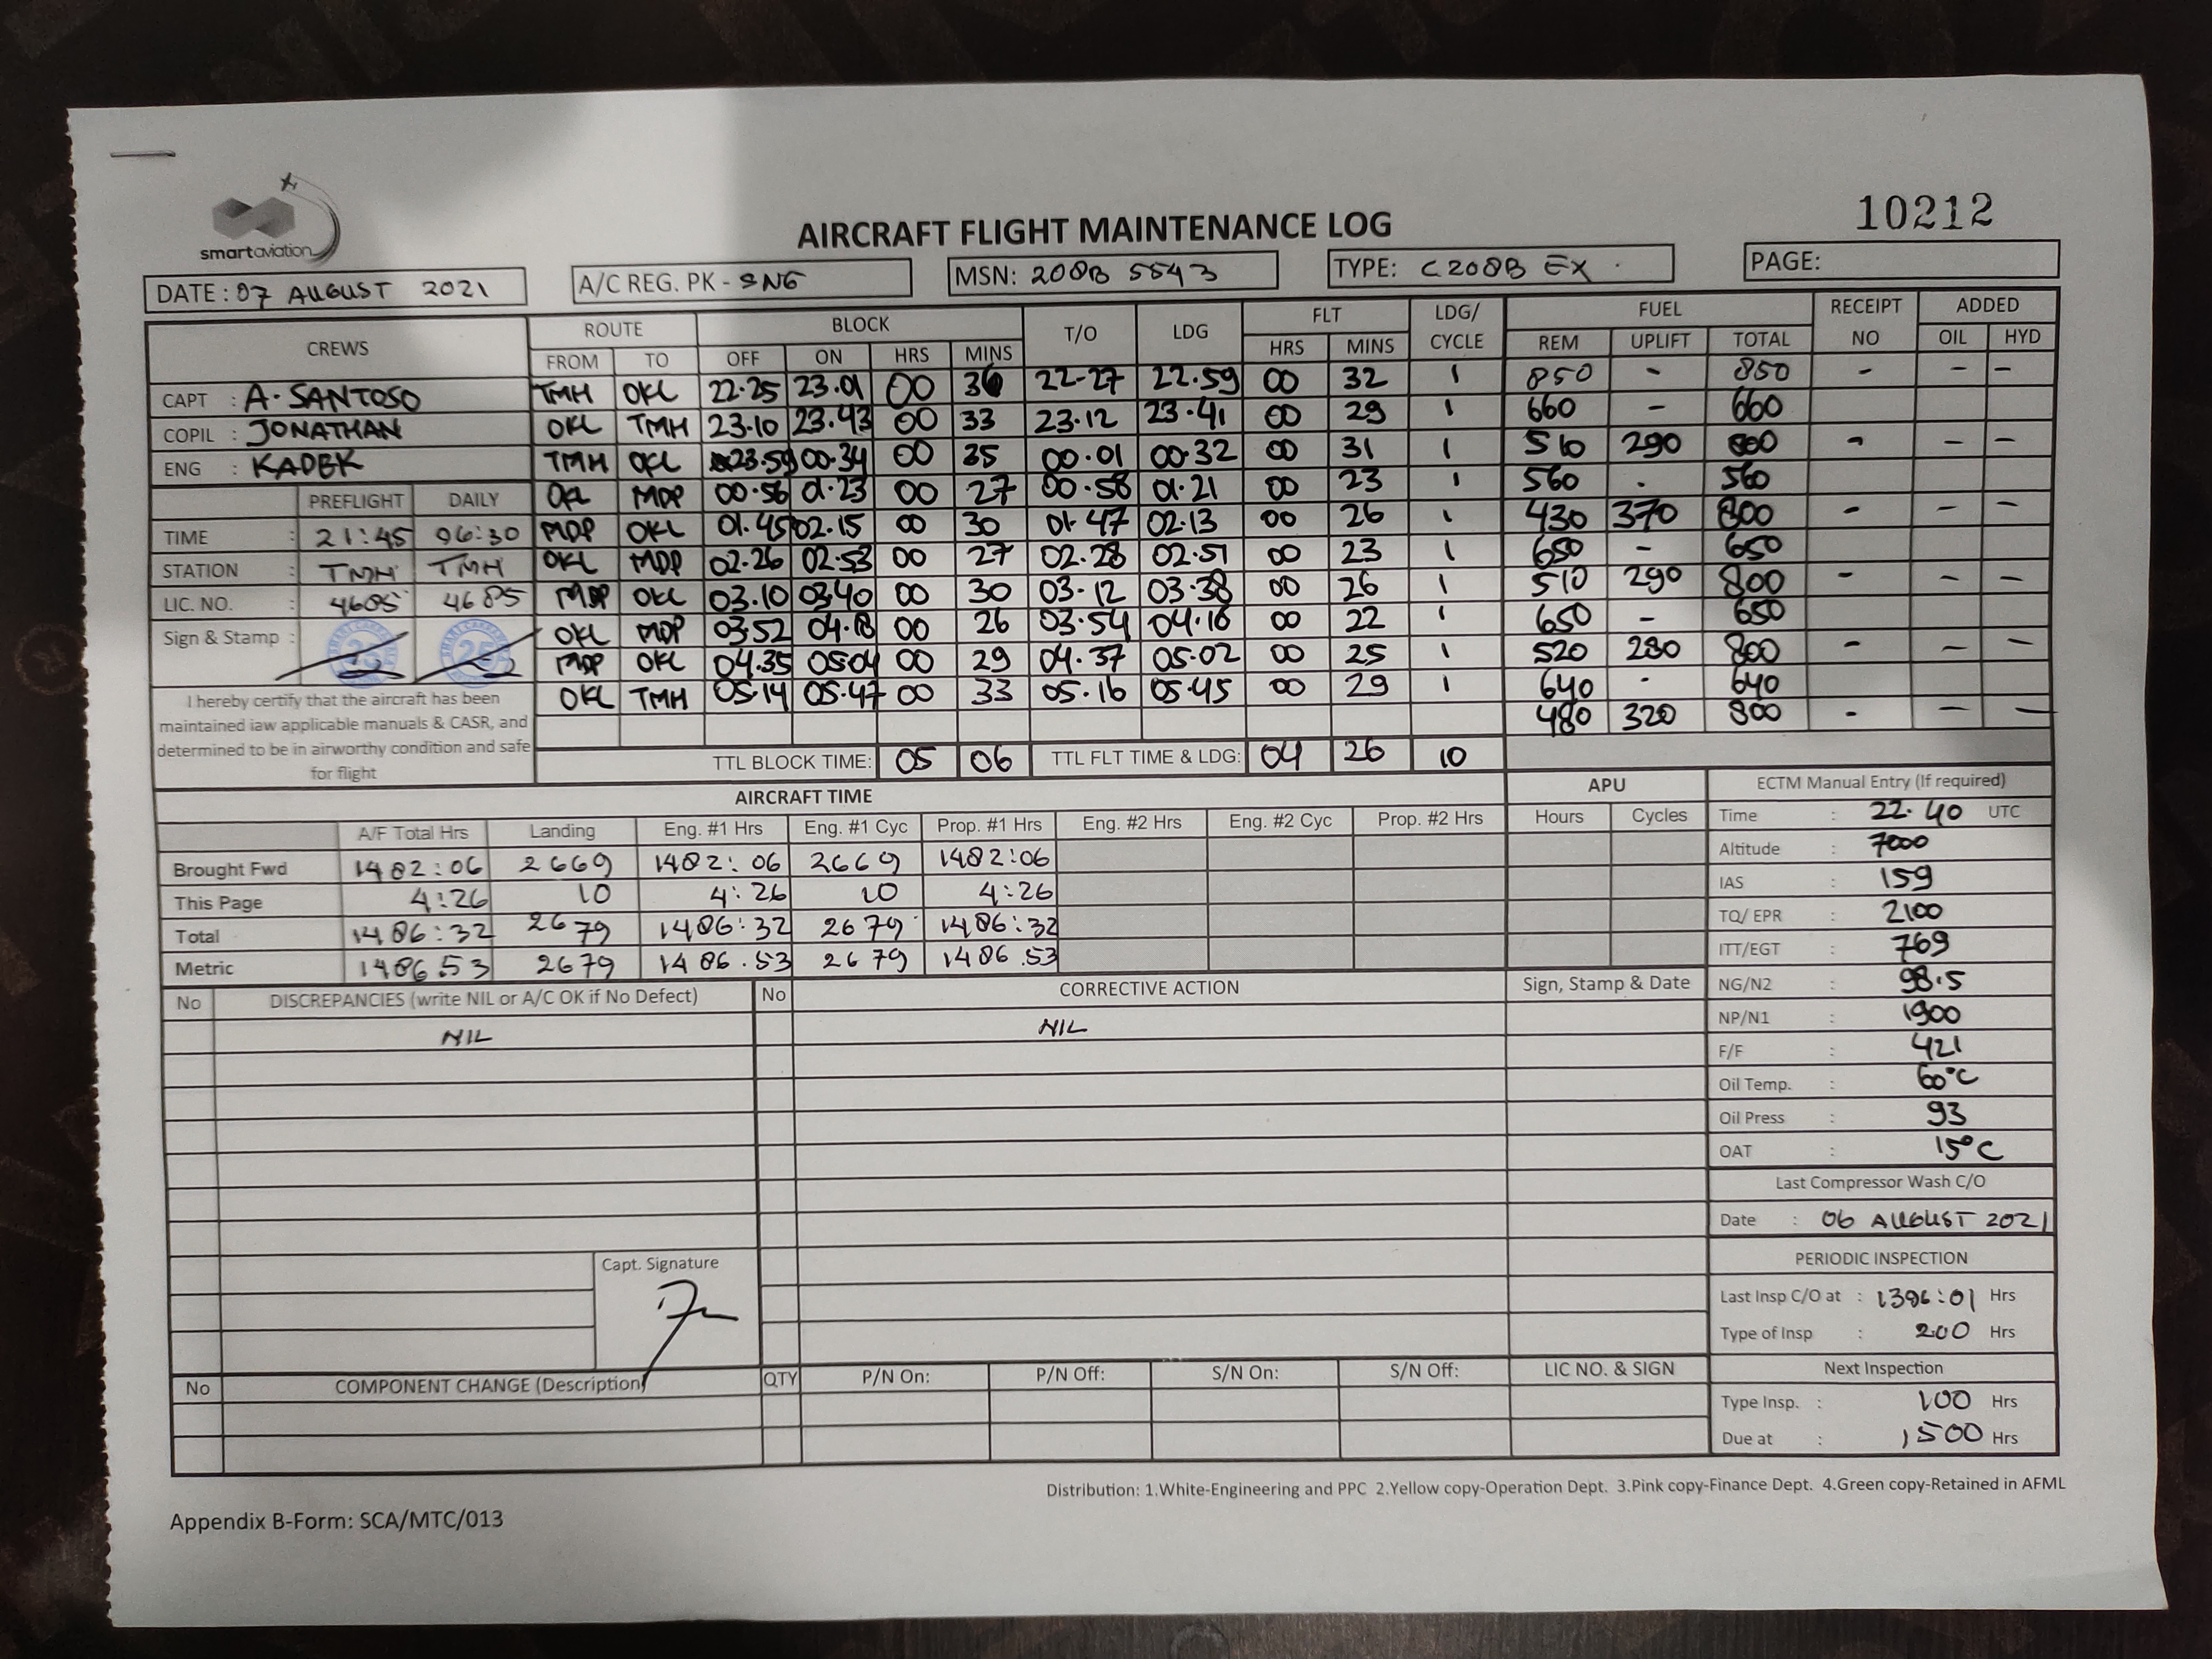 smartaviation
10212
AIRCRAFT FLIGHT MAINTENANCE LOG
DATE : 07 AUGUST 2021 A/C REG. PK - SNG MSN: 208B 5543 TYPE: C208B EX PAGE:
CREWS ROUTE BLOCK T/O LDG FLT LDG/ CYCLE FUEL RECEIPT NO ADDED
FROM TO OFF ON HRS MINS HRS MINS REM UPLIFT TOTAL OIL HYD
CAPT : A. SANTOSO TMH OKL 22.25 23.01 00 36 22-27 22.59 00 32 1 850 - 850 - - -
COPIL : JONATHAN OKL TMH 23.10 23.43 00 33 23.12 23.41 00 29 1 660 - 660
ENG : KADEK TMH OKL 23.59 00.34 00 35 00.01 00.32 00 31 1 510 290 800 - - -
PREFLIGHT DAILY OKL MDP 00.56 01.23 00 27 00.58 01.21 00 23 1 560 - 560
TIME : 21:45 06:30 MDP OKL 01.45 02.15 00 30 01.47 02.13 00 26 1 430 370 800 - - -
STATION : TMH TMH OKL MDP 02.26 02.53 00 27 02.28 02.51 00 23 1 650 - 650
LIC. NO. : 4685 4685 MDP OKL 03.10 03.40 00 30 03.12 03.38 00 26 1 510 290 800 - - -
Sign & Stamp : OKL MDP 03.52 04.18 00 26 03.54 04.16 00 22 1 650 - 650
MDP OKL 04.35 05.04 00 29 04.37 05.02 00 25 1 520 280 800 - - -
OKL TMH 05.14 05.47 00 33 05.16 05.45 00 29 1 640 - 640
480 320 800 - - -
I hereby certify that the aircraft has been
maintained iaw applicable manuals & CASR, and
determined to be in airworthy condition and safe
for flight
TTL BLOCK TIME: 05 06 TTL FLT TIME & LDG: 04 26 10
AIRCRAFT TIME APU ECTM Manual Entry (If required)
A/F Total Hrs Landing Eng. #1 Hrs Eng. #1 Cyc Prop. #1 Hrs Eng. #2 Hrs Eng. #2 Cyc Prop. #2 Hrs Hours Cycles Time : 22.40 UTC
Brought Fwd 1482:06 2669 1482:06 2669 1482:06 Altitude : 7000
This Page 4:26 10 4:26 10 4:26 IAS : 159
Total 1486:32 2679 1486:32 2679 1486:32 TQ/ EPR : 2100
Metric 1486.53 2679 1486.53 2679 1486.53 ITT/EGT : 769
No DISCREPANCIES (write NIL or A/C OK if No Defect) No CORRECTIVE ACTION Sign, Stamp & Date NG/N2 : 98.5
NIL NIL NP/N1 : 1900
F/F : 421
Oil Temp. : 60°C
Oil Press : 93
OAT : 15°C
Last Compressor Wash C/O
Date : 06 AUGUST 2021
PERIODIC INSPECTION
Capt. Signature
Last Insp C/O at : 1396:01 Hrs
Type of Insp : 200 Hrs
No COMPONENT CHANGE (Description) QTY P/N On: P/N Off: S/N On: S/N Off: LIC NO. & SIGN Next Inspection
Type Insp. : 100 Hrs
Due at : 1500 Hrs
Distribution: 1.White-Engineering and PPC 2.Yellow copy-Operation Dept. 3.Pink copy-Finance Dept. 4.Green copy-Retained in AFML
Appendix B-Form: SCA/MTC/013